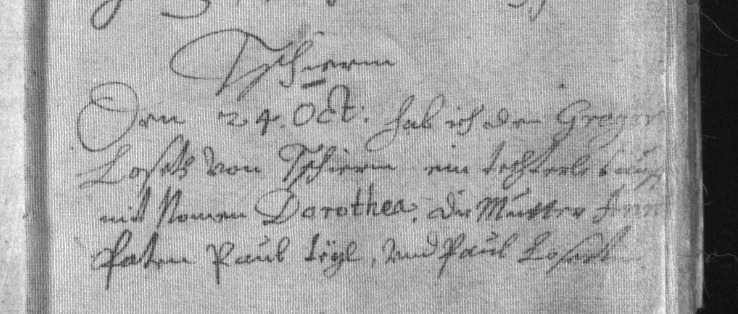 Tschierm
Den 24. Oct. hab ich dem Greger
Losek von Tschierm ein techterle tauf
mit Nomen Dorothea, die Mutter Ann
Paten Paul , und Paul Losek